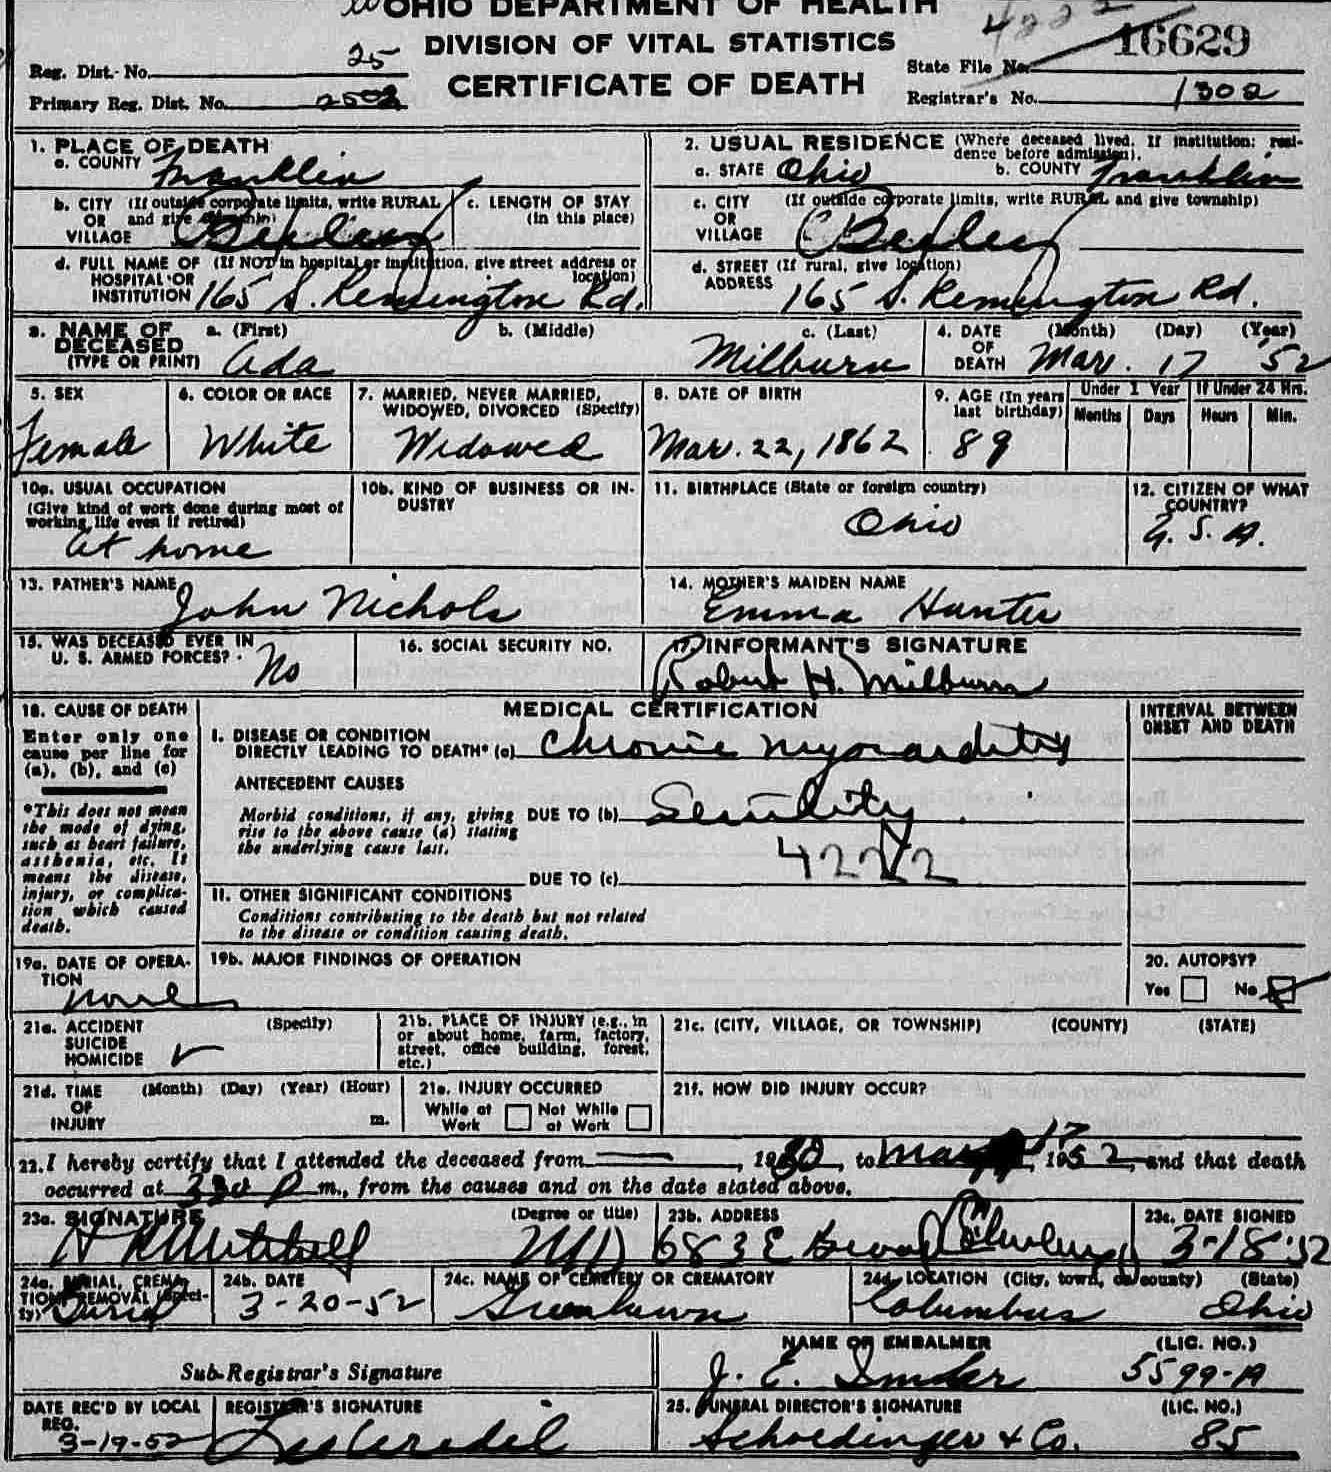 OHIO DEPARTMENT OF HEALTH
DIVISION OF VITAL STATISTICS
CERTIFICATE OF DEATH
Reg. Dist. No. 25
Primary Reg. Dist. No. 2503
4222 16629
State File No.
Registrar's No. 1302
1. PLACE OF DEATH
a. COUNTY Franklin
b. CITY (If outside corporate limits, write RURAL
OR and give township)
VILLAGE Bexley
c. LENGTH OF STAY
(in this place)
d. FULL NAME OF (If NOT in hospital or institution, give street address or
HOSPITAL OR location)
INSTITUTION 165 S. Remington Rd.
2. USUAL RESIDENCE (Where deceased lived. If institution: resi-
dence before admission).
a. STATE Ohio b. COUNTY Franklin
c. CITY (If outside corporate limits, write RURAL and give township)
OR
VILLAGE Bexley
d. STREET (If rural, give location)
ADDRESS 165 S. Remington Rd.
3. NAME OF a. (First) b. (Middle) c. (Last)
DECEASED
(TYPE OR PRINT) Ada Milburn
4. DATE (Month) (Day) (Year)
OF
DEATH Mar. 17 '52
5. SEX
Female
6. COLOR OR RACE
White
7. MARRIED, NEVER MARRIED,
WIDOWED, DIVORCED (Specify)
Widowed
8. DATE OF BIRTH
Mar. 22, 1862
9. AGE (In years
last birthday)
89
Under 1 Year
Months Days
If Under 24 Hrs.
Hours Min.
10a. USUAL OCCUPATION
(Give kind of work done during most of
working life even if retired)
At home
10b. KIND OF BUSINESS OR IN-
DUSTRY
11. BIRTHPLACE (State or foreign country)
Ohio
12. CITIZEN OF WHAT
COUNTRY?
U. S. A.
13. FATHER'S NAME
John Nichols
14. MOTHER'S MAIDEN NAME
Emma Hunter
15. WAS DECEASED EVER IN
U. S. ARMED FORCES? No
16. SOCIAL SECURITY NO.
17. INFORMANT'S SIGNATURE
Robert H. Milburn
18. CAUSE OF DEATH
Enter only one
cause per line for
(a), (b), and (c)
*This does not mean
the mode of dying,
such as heart failure,
asthenia, etc. It
means the disease,
injury, or complica-
tion which caused
death.
MEDICAL CERTIFICATION
I. DISEASE OR CONDITION
DIRECTLY LEADING TO DEATH* (a) Chronic myocarditis
ANTECEDENT CAUSES
Morbid conditions, if any, giving DUE TO (b) Senility
rise to the above cause (a) stating
the underlying cause last.
4222
DUE TO (c)
II. OTHER SIGNIFICANT CONDITIONS
Conditions contributing to the death but not related
to the disease or condition causing death.
INTERVAL BETWEEN
ONSET AND DEATH
19a. DATE OF OPERA-
TION
none
19b. MAJOR FINDINGS OF OPERATION
20. AUTOPSY?
Yes No
21a. ACCIDENT (Specify)
SUICIDE
HOMICIDE
21b. PLACE OF INJURY (e.g., in
or about home, farm, factory,
street, office building, forest,
etc.)
21c. (CITY, VILLAGE, OR TOWNSHIP) (COUNTY) (STATE)
21d. TIME (Month) (Day) (Year) (Hour)
OF
INJURY m.
21e. INJURY OCCURRED
While at Not While
Work at Work
21f. HOW DID INJURY OCCUR?
22. I hereby certify that I attended the deceased from , 1950, to Mar 17, 1952, and that death
occurred at 330 P m., from the causes and on the date stated above.
23a. SIGNATURE (Degree or title)
H R Mitchell MD
23b. ADDRESS
683 E Broad
23c. DATE SIGNED
3-18-52
24a. BURIAL, CREMA-
TION, REMOVAL (Speci-
fy) Burial
24b. DATE
3-20-52
24c. NAME OF CEMETERY OR CREMATORY
Greenlawn
24d. LOCATION (City, town, or county) (State)
Columbus Ohio
Sub-Registrar's Signature
NAME OF EMBALMER (LIC. NO.)
J. E. 5599-A
DATE REC'D BY LOCAL
REG.
3-19-52
REGISTRAR'S SIGNATURE
25. FUNERAL DIRECTOR'S SIGNATURE (LIC. NO.)
Schoedinger & Co. 85